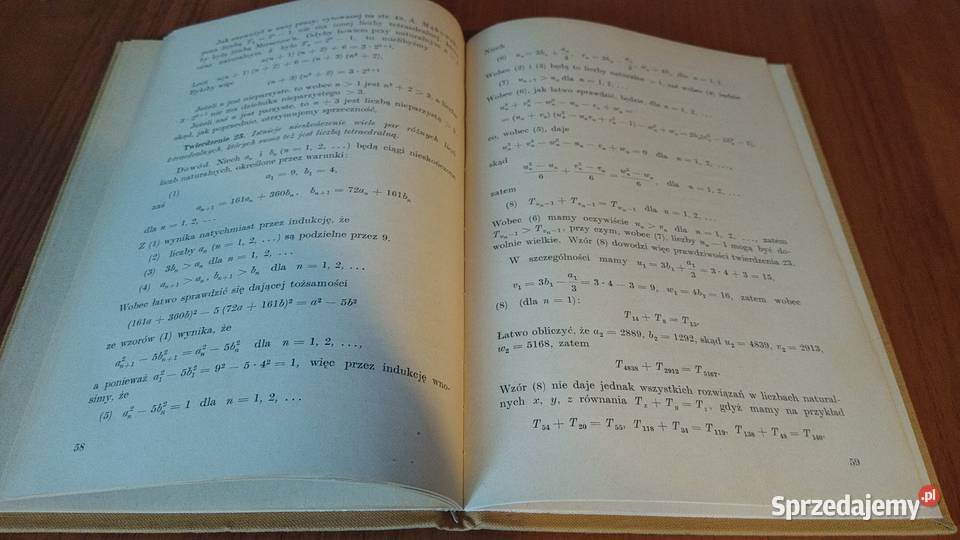 Jak zauważył w swej pracy, cytowanej na str. A. Mąkowski
by była liczbą Mersenne'a. Gdyby bowiem przy naturalnym
n(n + 1)(n + 2) = 6 = 3 · 2
Lecz n(n + 1)(n + 2) + 6 = (n + 3)(n² + 2),
Byłoby więc
(n + 3)(n² + 2) = 3 · 2
Jeżeli n jest nieparzyste, to wobec n > 1 jest n² + 2 > 3, a liczba
3 · 2 nie ma dzielnika nieparzystego > 3.
Jeżeli zaś n jest parzyste, to n + 3 jest liczbą nieparzystą > 3
skąd, jak poprzednio, otrzymujemy sprzeczność.
Twierdzenie 23. Istnieje nieskończenie wiele par różnych liczb
tetraedralnych, których suma też jest liczbą tetraedralną.
Dowód. Niech aₙ i bₙ (n = 1, 2, ...) będą ciągi nieskończone
liczb naturalnych, określone przez warunki:
(1) a₁ = 9, b₁ = 4,
zaś aₙ₊₁ = 161aₙ + 360bₙ, bₙ₊₁ = 72aₙ + 161bₙ
dla n = 1, 2, ...
Z (1) wynika natychmiast przez indukcję, że
(2) liczby aₙ (n = 1, 2, ...) są podzielne przez 9,
(3) 3bₙ > aₙ dla n = 1, 2, ...
(4) aₙ₊₁ > aₙ, bₙ₊₁ > bₙ dla n = 1, 2, ...
Wobec łatwo sprawdzić się dającej tożsamości
(161a + 360b)² − 5(72a + 161b)² = a² − 5b²
ze wzorów (1) wynika, że
a²ₙ₊₁ − 5b²ₙ₊₁ = a²ₙ − 5b²ₙ dla n = 1, 2, ...,
a ponieważ a²₁ − 5b²₁ = 9² − 5 · 4² = 1, więc przez indukcję wno-
simy, że
(5) a²ₙ − 5b²ₙ = 1 dla n = 1, 2, ...
58
Niech
(6) uₙ = 3bₙ + aₙ/3, vₙ = 3bₙ − aₙ/3, wₙ = 4bₙ dla n = 1, 2, ...
Wobec (2) i (3) będą to liczby naturalne i, zaś wobec (4) będzie
(7) uₙ₊₁ > uₙ dla n = 1, 2, ...
Wobec (6), jak łatwo sprawdzić, będzie, dla n = 1, 2, ...
co, wobec (5), daje
u³ₙ + v³ₙ − w³ₙ − uₙ − vₙ + wₙ = 0 dla n = 1, 2, ...,
skąd
(u³ₙ − uₙ)/6 + (v³ₙ − vₙ)/6 = (w³ₙ − wₙ)/6, dla n = 1, 2, ...
zatem
(8) Tᵤₙ₋₁ + Tᵥₙ₋₁ = T_wₙ₋₁ dla n = 1, 2, ...
Wobec (6) mamy oczywiście uₙ > vₙ dla n = 1, 2, ..., zatem
Tᵤₙ₋₁ > Tᵥₙ₋₁, przy czym, wobec (7), liczby uₙ − 1 mogą być do-
wolnie wielkie. Wzór (8) dowodzi więc prawdziwości twierdzenia 23.
W szczególności mamy u₁ = 3b₁ + a₁/3 = 3 · 4 + 3 = 15,
v₁ = 3b₁ − a₁/3 = 3 · 4 − 3 = 9, w₁ = 4b₁ = 16, zatem wobec
(8) (dla n = 1):
T₁₄ + T₈ = T₁₅.
Łatwo obliczyć, że a₂ = 2889, b₂ = 1292, skąd u₂ = 4839, v₂ = 2913,
w₂ = 5168, zatem
T₄₈₃₈ + T₂₉₁₂ = T₅₁₆₇.
Wzór (8) nie daje jednak wszystkich rozwiązań w liczbach natural-
nych x, y, z równania Tₓ + T_y = T_z, gdyż mamy na przykład
T₅₄ + T₂₀ = T₅₅, T₁₁₈ + T₃₄ = T₁₁₉, T₁₃₈ + T₄₈ = T₁₄₀.
59
Sprzedajemy.pl